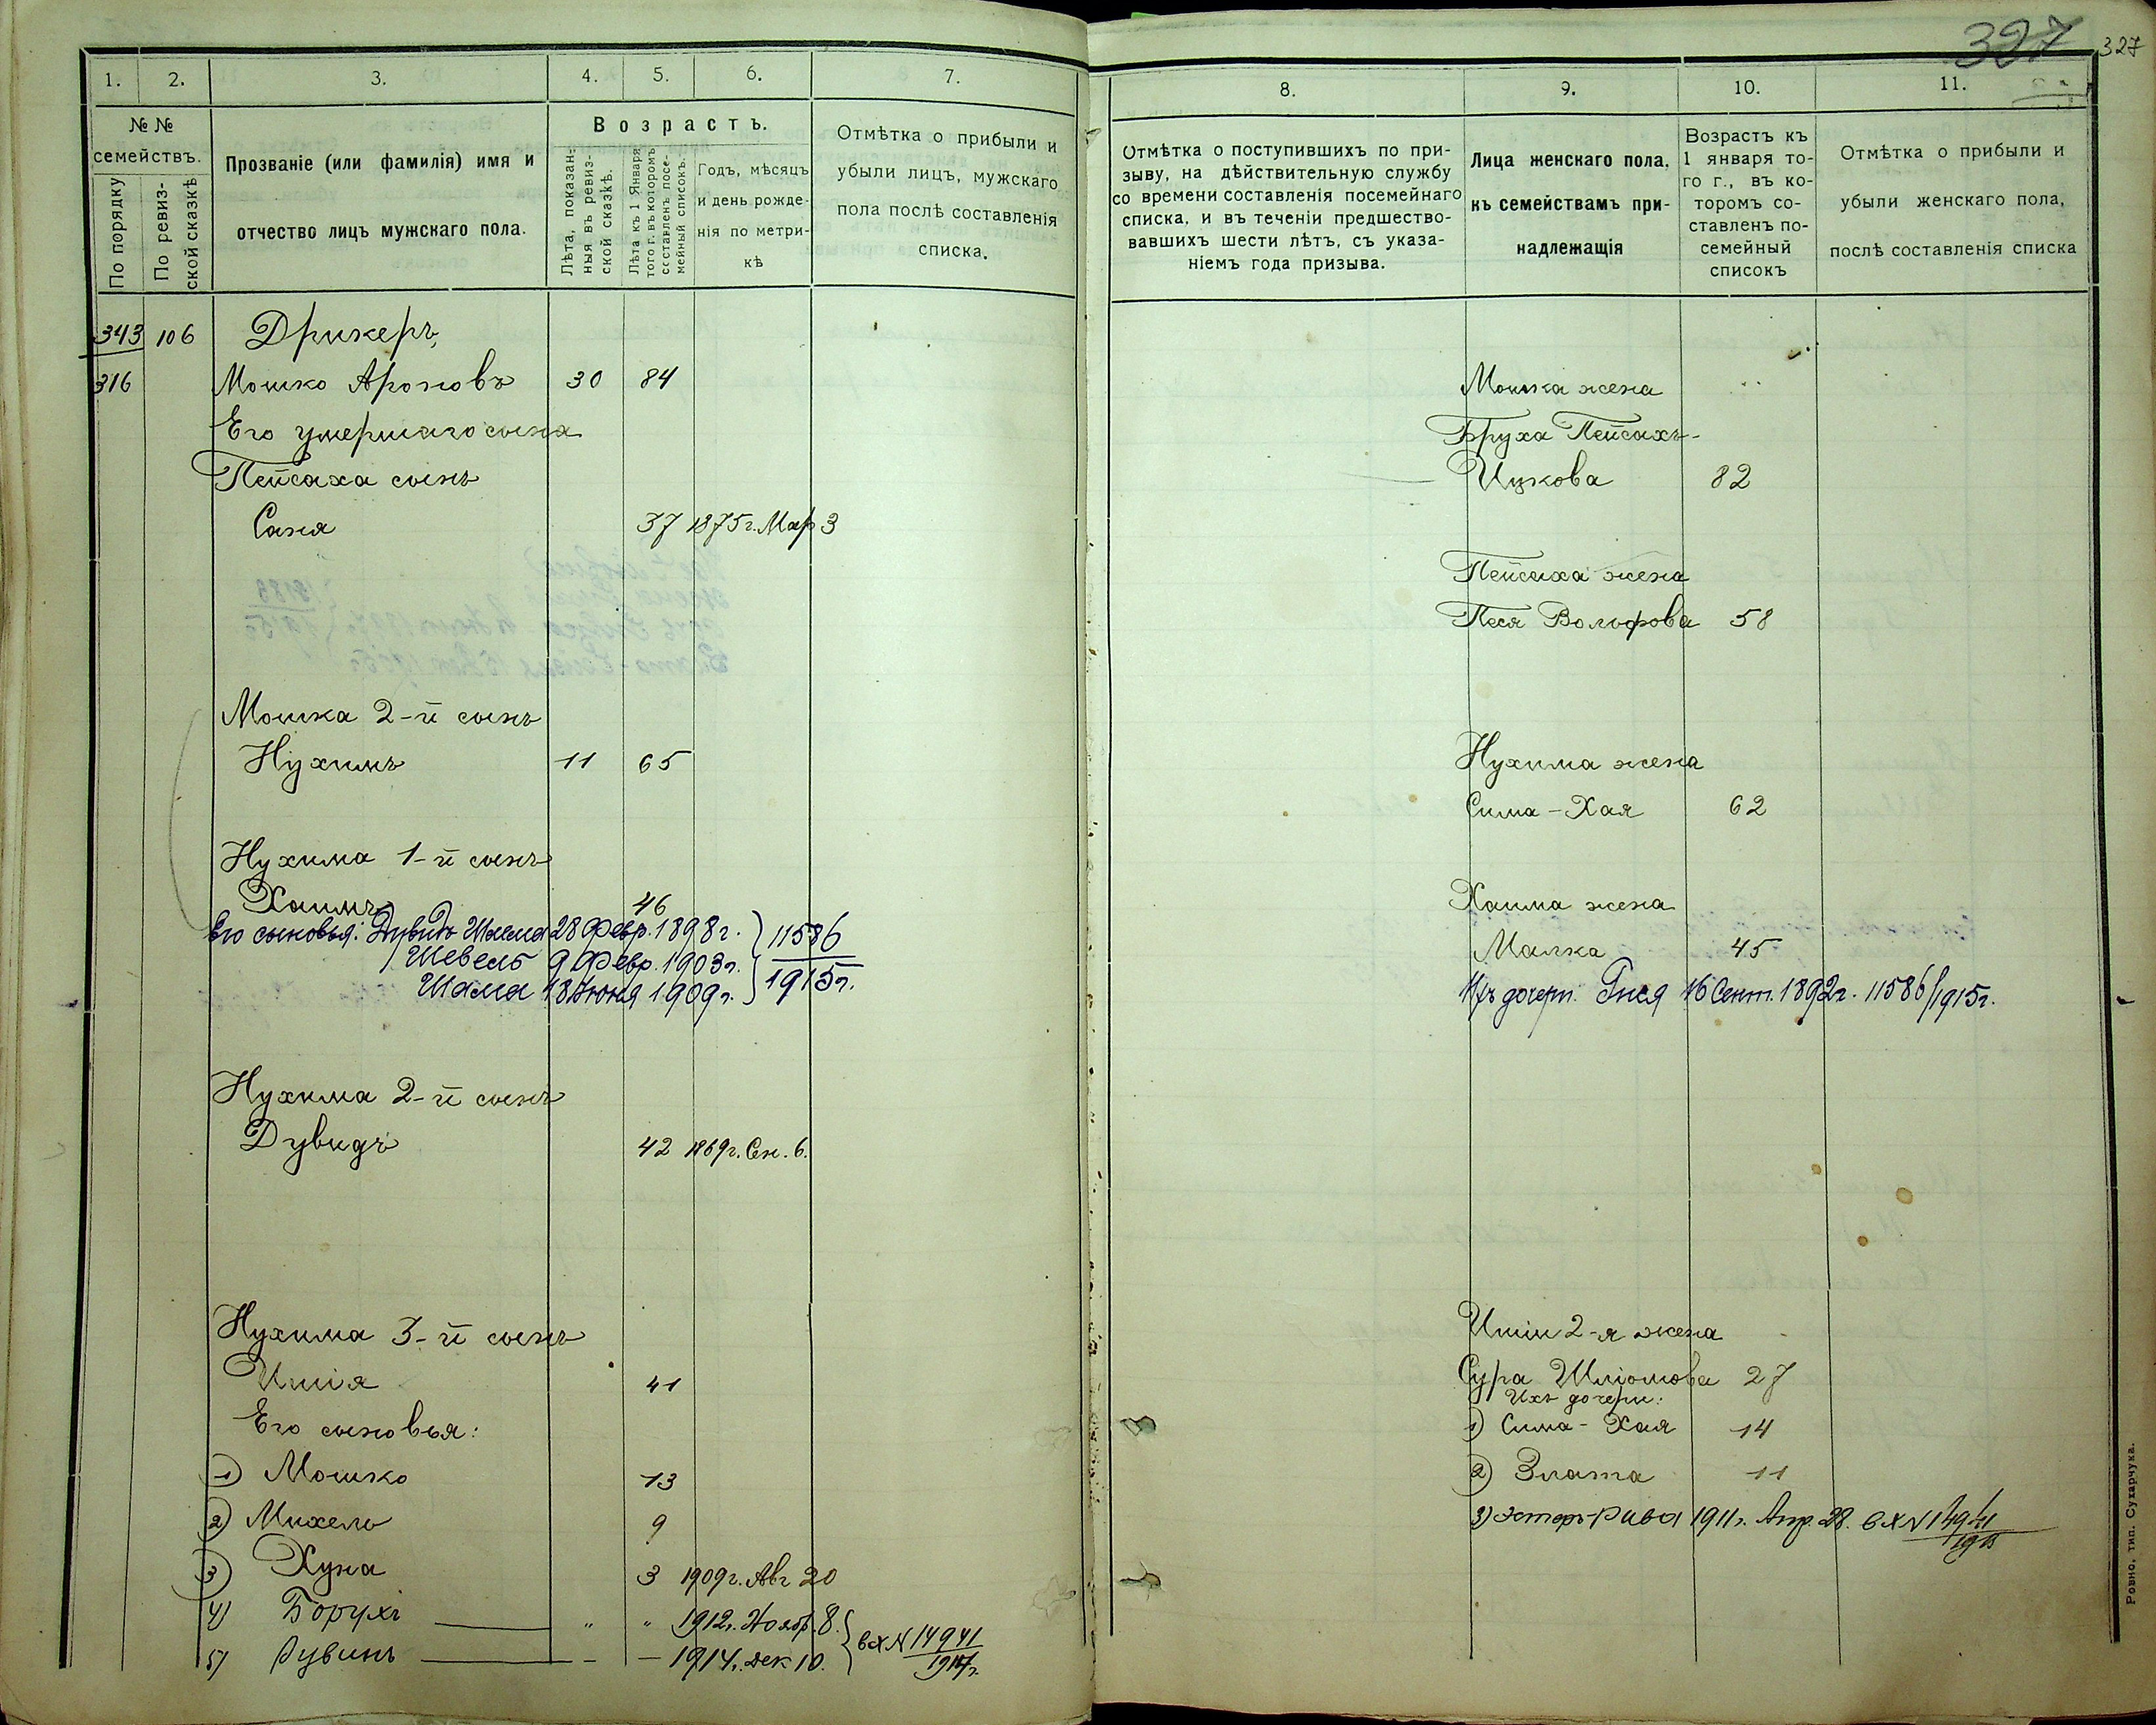 327
327
1.
2.
3.
4.
5.
6.
7.
№ №
семействъ.
По порядку
По ревиз-
ской сказкѣ
Прозваніе (или фамилія) имя и
отчество лицъ мужскаго пола.
Возрастъ.
Лѣта, показан-
ныя въ ревиз-
ской сказкѣ.
Лѣта къ 1 Января
того г. въ которомъ
составленъ посе-
мейный списокъ.
Годъ, мѣсяцъ
и день рожде-
нія по метри-
кѣ
Отмѣтка о прибыли и
убыли лицъ, мужскаго
пола послѣ составленія
списка.
343 106 Дрикеръ,
316 Мошко Ароновъ 30 84
Его умершаго сына
Пейсаха сынъ
Саня 37 1875 г. Мар 3
Мошка 2-й сынъ
Нухимъ 11 65
Нухима 1-й сынъ
Хаимъ 46
Его сыновья: Дувидъ Шама 28 Февр. 1898 г.
Шевель 9 Февр. 1903 г.
Шама 18 Июня 1909 г.
11586
1915 г.
Нухима 2-й сынъ
Дувидъ 42 1869 г. Сен. 6.
Нухима 3-й сынъ
Ишія 41
Его сыновья:
1) Мошко 13
2) Михель 9
3) Хуна 3 1909 г. Авг 20
4) Борухъ " " 1912 г. Нояб. 8.
5) Рувинъ — — 1914 г. Дек 10.
вх N 14941
8.
9.
10.
11.
Отмѣтка о поступившихъ по при-
зыву, на дѣйствительную службу
со времени составленія посемейнаго
списка, и въ теченіи предшество-
вавшихъ шести лѣтъ, съ указа-
ніемъ года призыва.
Лица женскаго пола,
къ семействамъ при-
надлежащія
Возрастъ къ
1 января то-
го г., въ ко-
торомъ со-
ставленъ по-
семейный
списокъ
Отмѣтка о прибыли и
убыли женскаго пола,
послѣ составленія списка
Мошка жена
Бруха Пейсахъ-
Ицкова 82
Пейсаха жена
Песя Вольфова 58
Нухима жена
Сима-Хая 62
Хаима жена
Малка 45
Ихъ дочери: Гися 16 Сент. 1892 г. 11586/1915 г.
Ишіи 2-я жена
Сура Шліомова 27
Ихъ дочери:
1) Сима-Хая 14
2) Злата 11
3) Эстеръ-Рива 1911 г. Апр. 28. вх N 14941
Ровно, тип. Сухарчука.